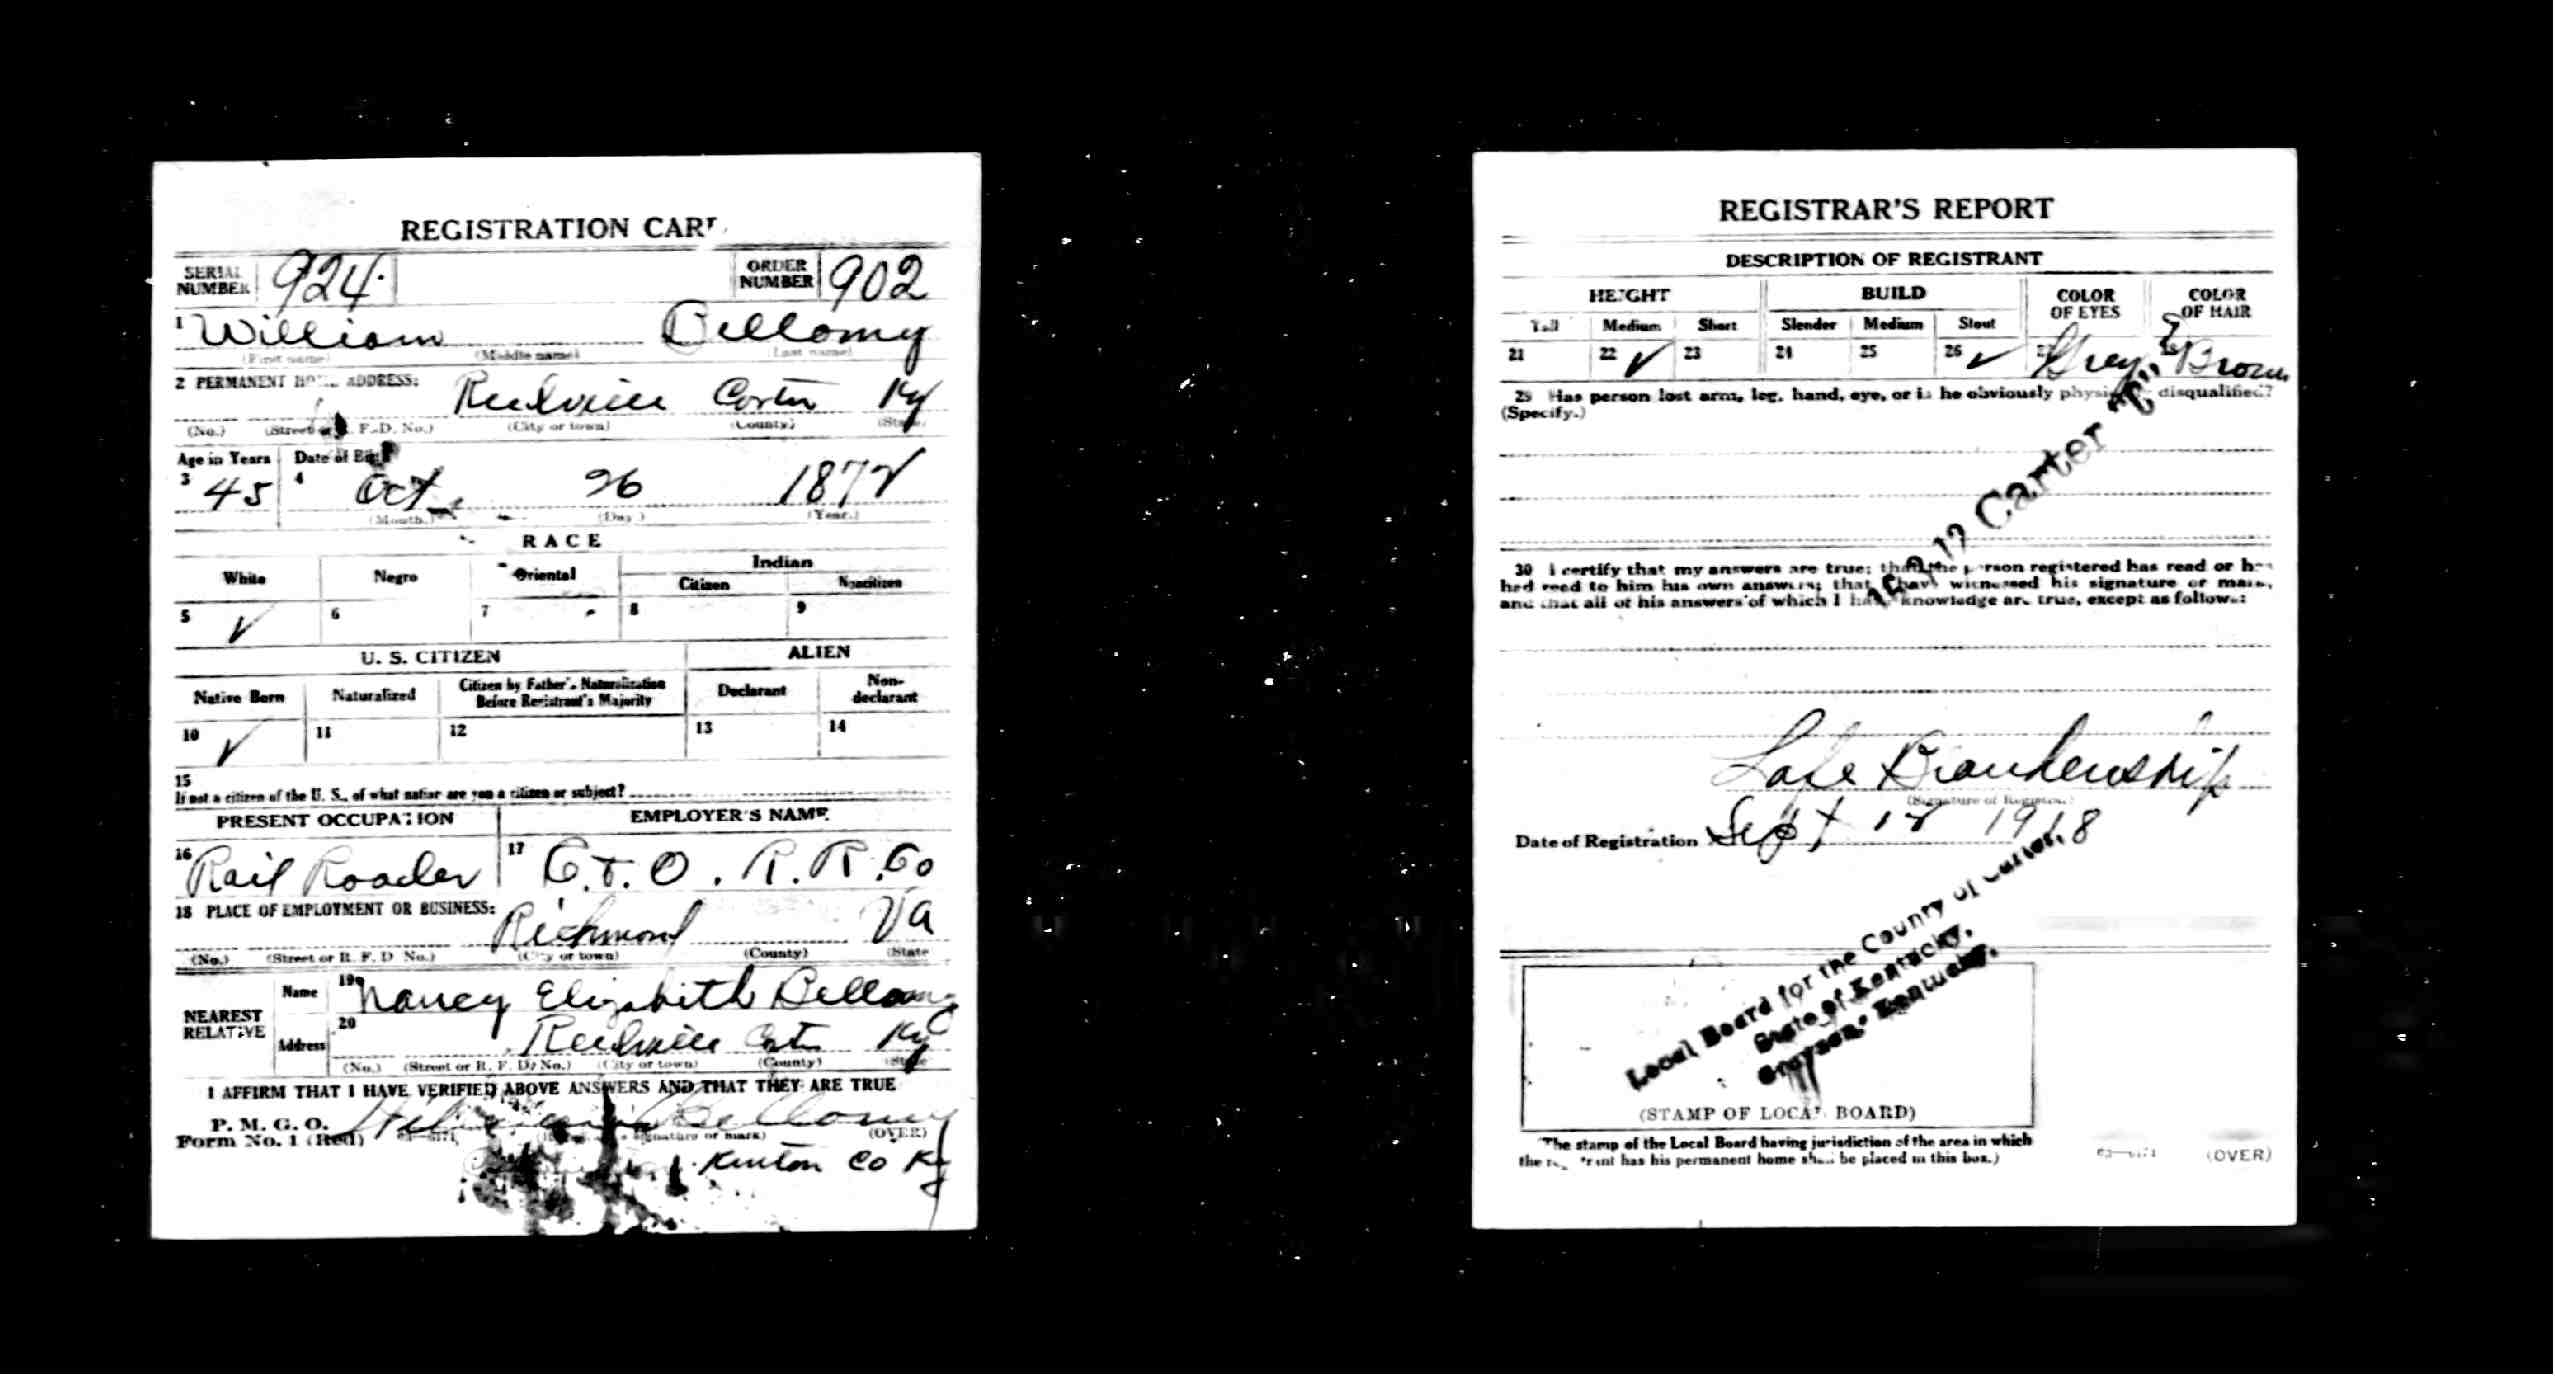 REGISTRATION CARD
SERIAL NUMBER 924 ORDER NUMBER 902
1 William Bellomy
(First name) (Middle name) (Last name)
2 PERMANENT HOME ADDRESS: Carter Ky
(No.) (Street or R. F. D. No.) (City or town) (County) (State)
Age in Years Date of Birth
3 45 4 Oct. 26 1872
(Month.) (Day.) (Year.)
RACE
White Negro Oriental Indian
Citizen Noncitizen
5 ✓ 6 7 8 9
U. S. CITIZEN ALIEN
Native Born Naturalized Citizen by Father's Naturalization Before Registrant's Majority Declarant Non-declarant
10 ✓ 11 12 13 14
15
If not a citizen of the U. S., of what nation are you a citizen or subject?
PRESENT OCCUPATION EMPLOYER'S NAME
16 Rail Roader 17 C. & O. R. R. Co
18 PLACE OF EMPLOYMENT OR BUSINESS: Richmond Va
(No.) (Street or R. F. D. No.) (City or town) (County) (State)
NEAREST RELATIVE Name 19 Nancy Elizabith Bellomy
Address 20 Ky
(No.) (Street or R. F. D. No.) (City or town) (County) (State)
I AFFIRM THAT I HAVE VERIFIED ABOVE ANSWERS AND THAT THEY ARE TRUE
P. M. G. O.
Form No. 1 (Red) William Bellomy
(Registrant's signature or mark) (OVER)
Kenton Co Ky
REGISTRAR'S REPORT
DESCRIPTION OF REGISTRANT
HEIGHT BUILD COLOR OF EYES COLOR OF HAIR
Tall Medium Short Slender Medium Stout
21 22 ✓ 23 24 25 26 ✓ 27 Grey 28 Brown
29 Has person lost arm, leg, hand, eye, or is he obviously physically disqualified?
(Specify.)
Carter
30 I certify that my answers are true; that the person registered has read or has
had read to him his own answers; that I have witnessed his signature or mark,
and that all of his answers of which I have knowledge are true, except as follows:
Lafe Blankenship
(Signature of Registrar.)
Date of Registration Sept 12 1918
Local Board for the County of Carter,
State of Kentucky,
Grayson, Kentucky.
(STAMP OF LOCAL BOARD)
(The stamp of the Local Board having jurisdiction of the area in which
the registrant has his permanent home shall be placed in this box.)
03—6171 (OVER)